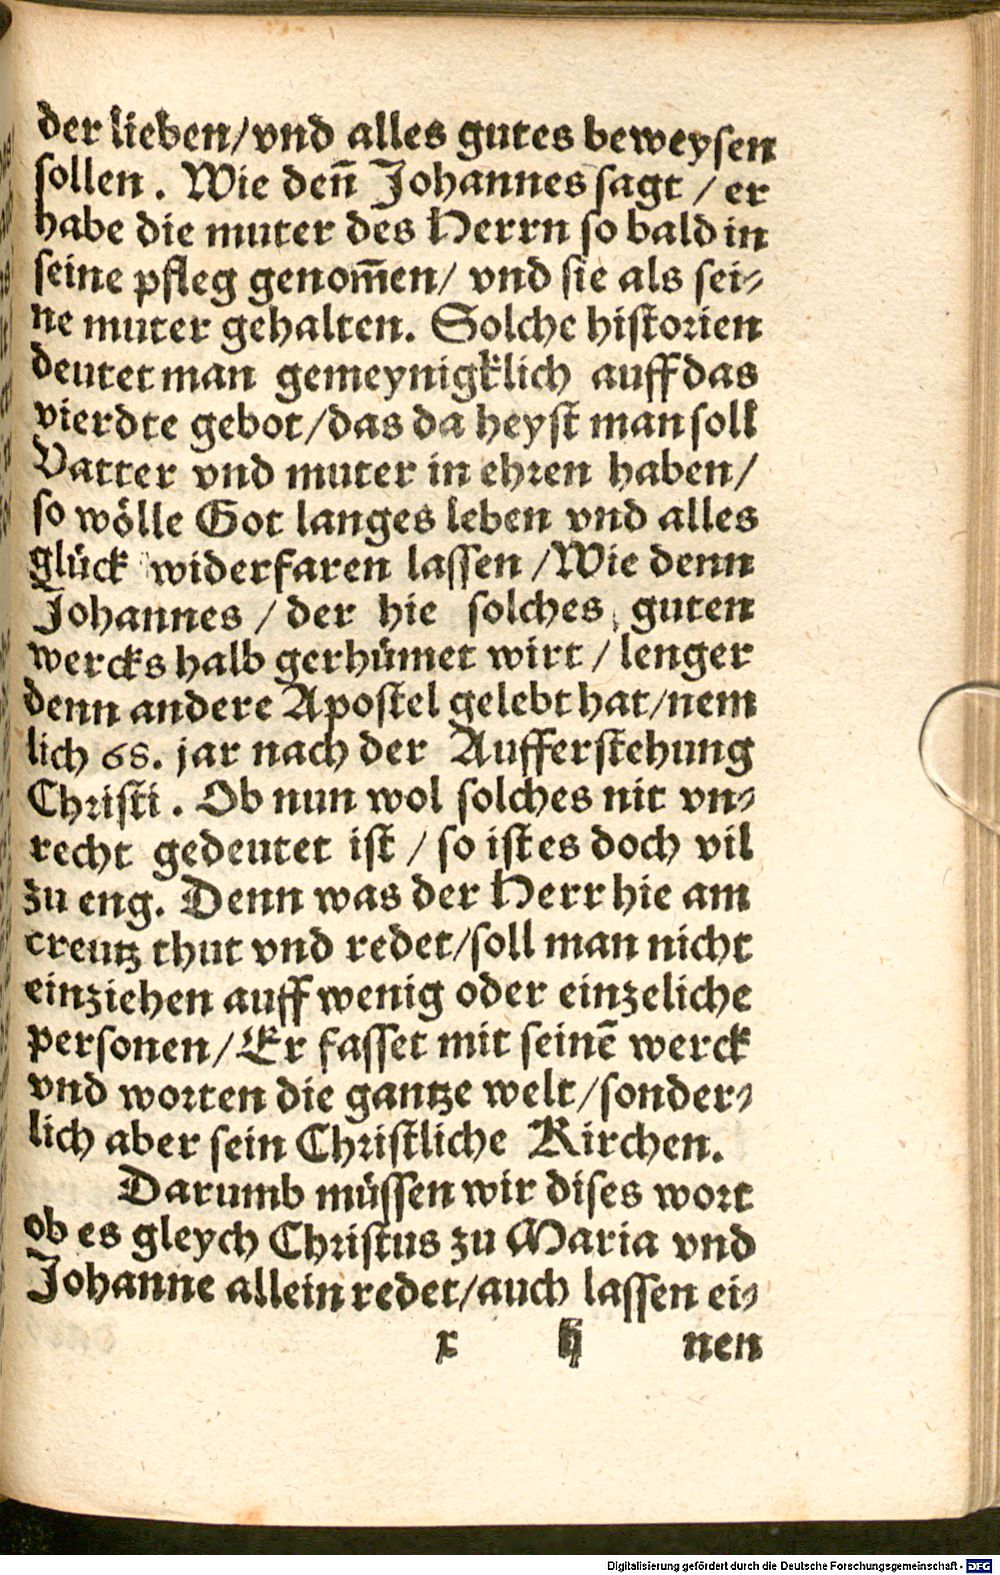 der lieben/vnd alles gutes beweysen
sollen. Wie deñ Johannes sagt/er
habe die muter des Herrn so bald in
seine pfleg genom̃en/ vnd sie als sei⸗
ne muter gehalten. Solche historien
deutet man gemeynigklich auff das
vierdte gebot/das da heyst man soll
Vatter vnd muter in ehren haben/
so wölle Got langes leben vnd alles
glück widerfaren lassen/Wie denn
Johannes/der hie solches guten
wercks halb gerhümet wirt/lenger
denn andere Apostel gelebt hat/nem
lich 68. jar nach der Aufferstehung
Christi. Ob nun wol solches nit vn⸗
recht gedeutet ist/so ist es doch vil
zu eng. Denn was der Herr hie am
creutz thut vnd redet/soll man nicht
einziehen auff wenig oder einzeliche
personen/Er fasset mit seinē werck
vnd worten die gantze welt/sonder⸗
lich aber sein Christliche Kirchen.
Darumb müssen wir dises wort
ob es gleych Christus zu Maria vnd
Johanne allein redet/auch lassen ei⸗
x ij nen
Digitalisierung gefördert durch die Deutsche Forschungsgemeinschaft - DFG